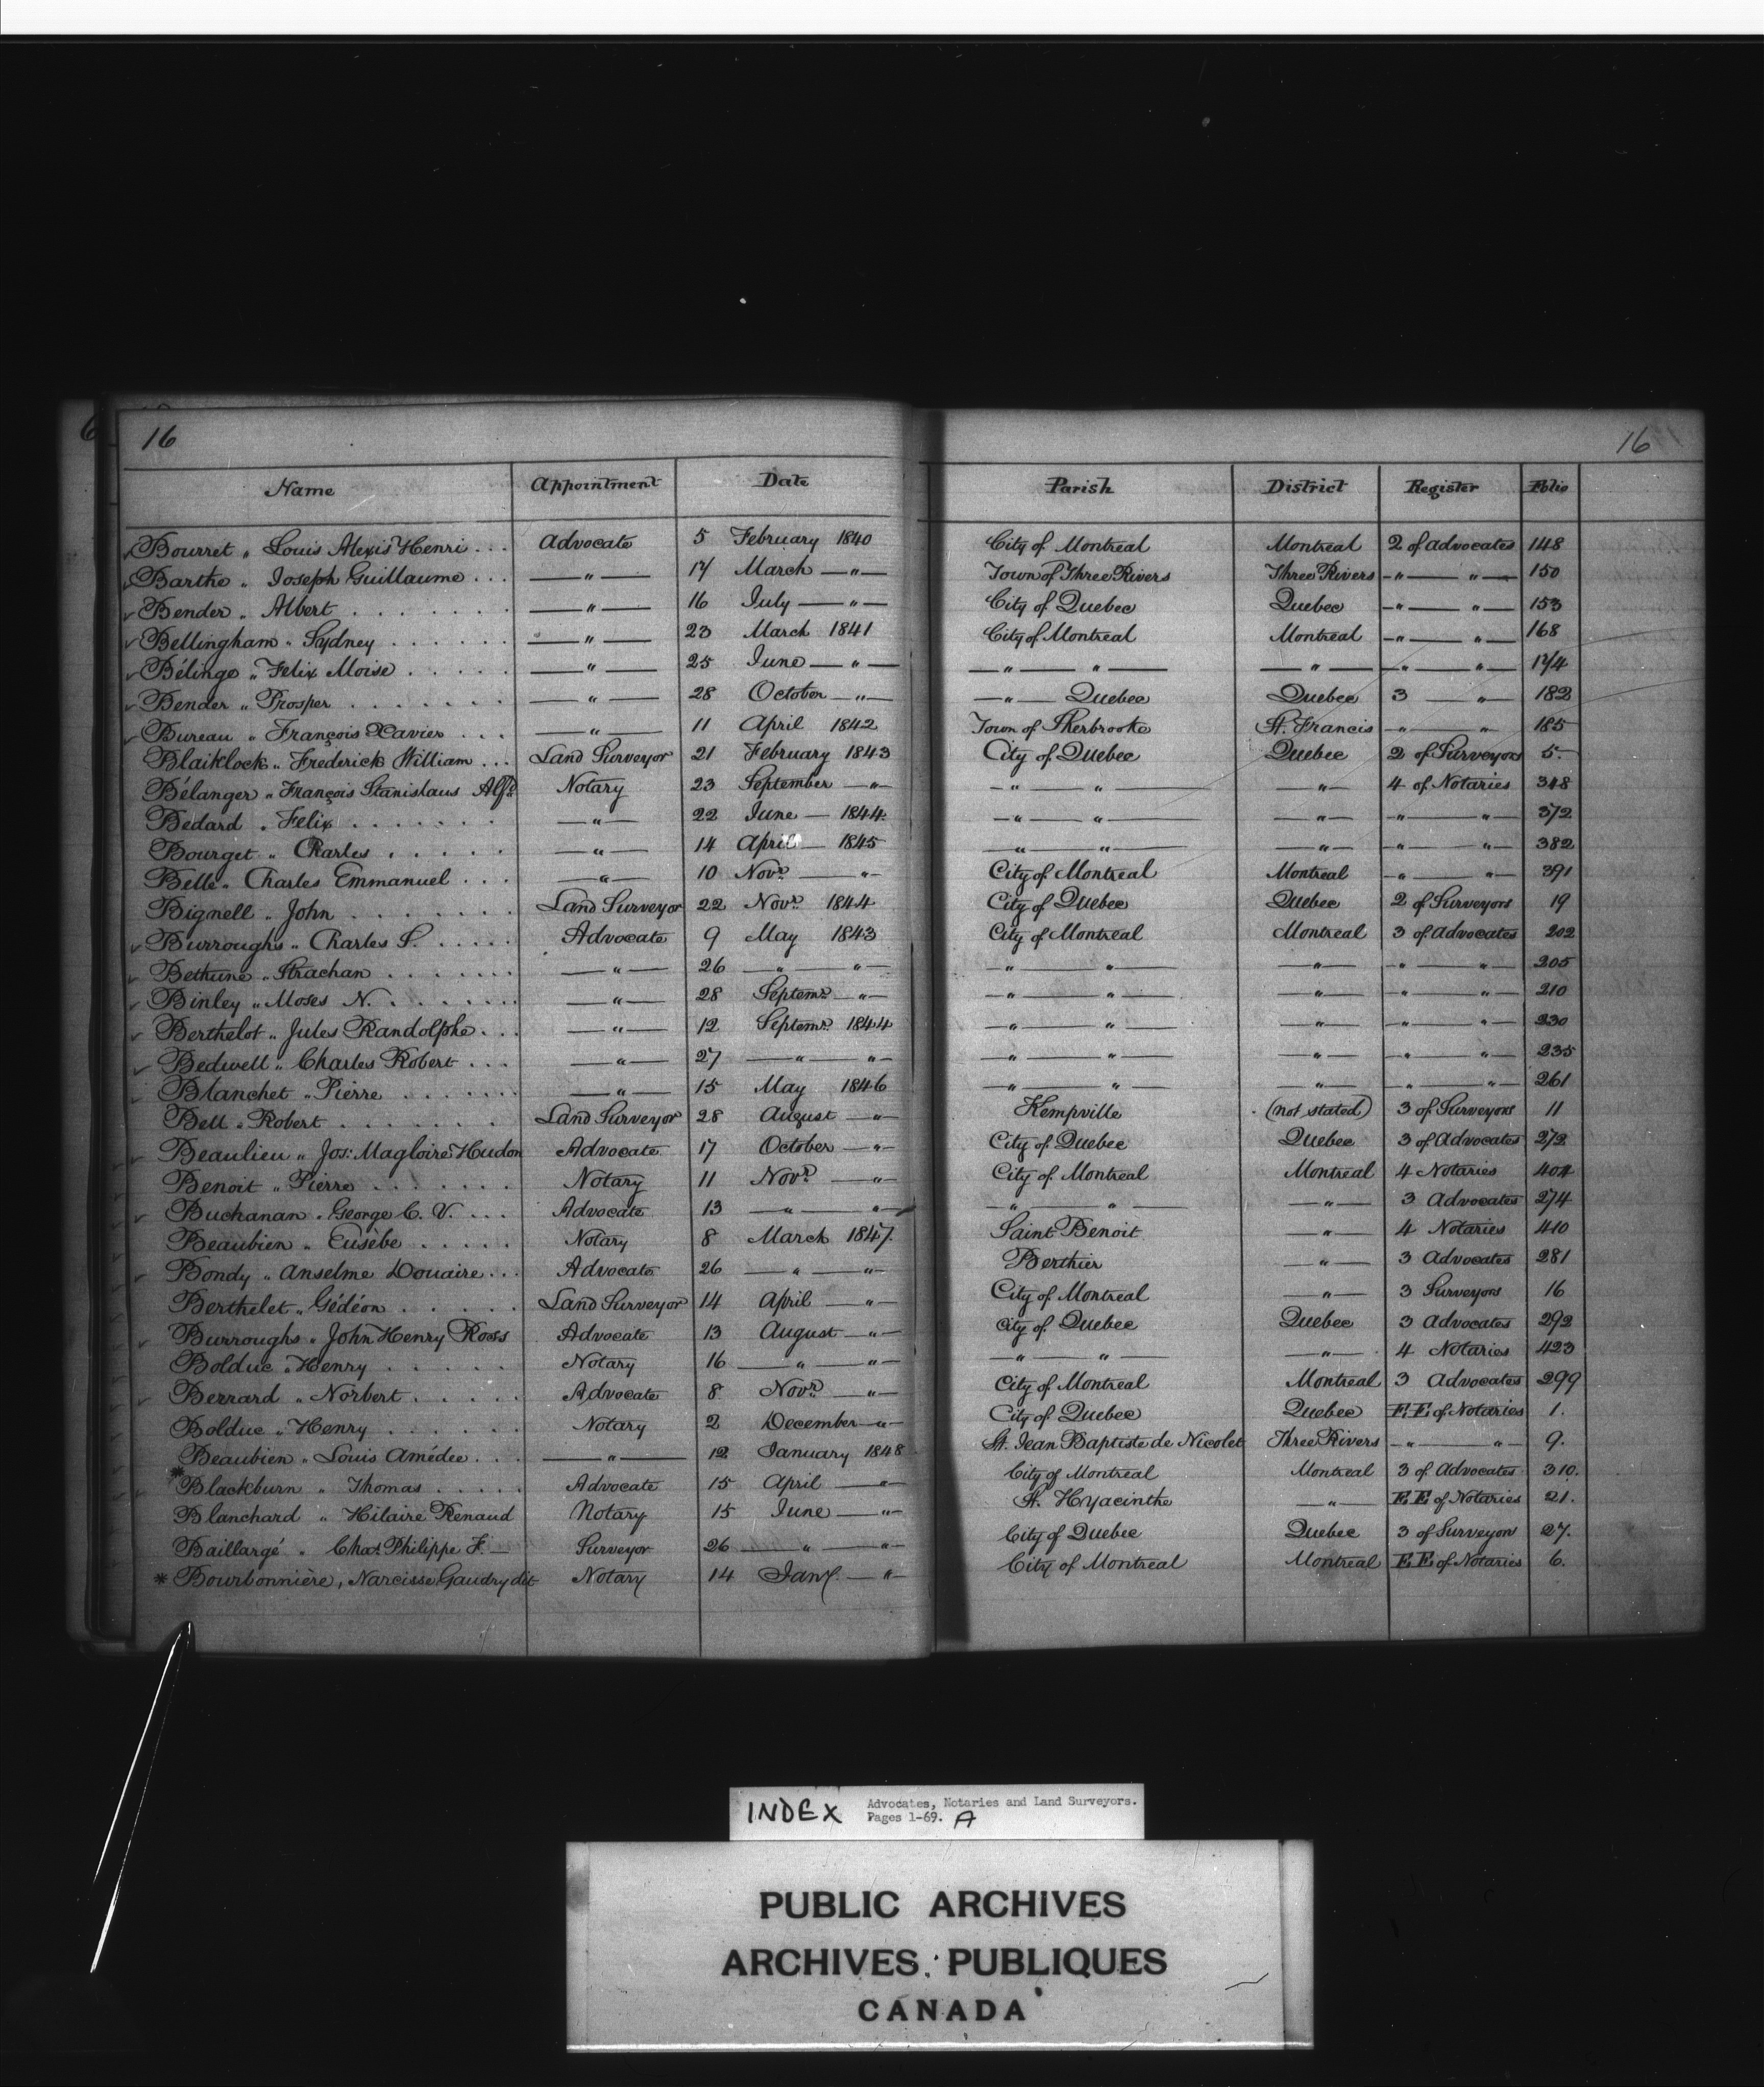 16 16
Name Appointment Date Parish District Register Folio
Bourret „ Louis Alexis Henri . . . Advocate 5 February 1840 City of Montreal Montreal 2 of Advocates 148
Barthe „ Joseph Guillaume . . . —„— 17 March —„— Town of Three Rivers Three Rivers —„— „— 150
Bender „ Albert . . . . . . . —„— 16 July —„— City of Quebec Quebec —„— „— 153
Bellingham „ Sydney . . . . . . —„— 23 March 1841 City of Montreal Montreal —„— „— 168
Bélinge „ Felix Moise . . . . . —„— 25 June —„— —„— „— —„— —„— „— 174
Bender „ Prosper . . . . . . . —„— 28 October —„— —„— Quebec Quebec 3 — „— 182
Bureau „ François Xavier . . . —„— 11 April 1842 Town of Sherbrooke St. Francis —„— „— 185
Blaiklock „ Frederick William . . . Land Surveyor 21 February 1843 City of Quebec Quebec 2 of Surveyors 5.
Bélanger „ François Stanislaus Alfd Notary 23 September —„— —„— „— —„— 4 of Notaries 348
Bedard „ Felix . . . . . . . —„— 22 June — 1844 —„— „— —„— —„— „— 372
Bourget „ Charles . . . . . —„— 14 April — 1845 —„— „— —„— —„— „— 382
Belle „ Charles Emmanuel . . . —„— 10 Novr. —„— City of Montreal Montreal —„— „— 391
Bignell „ John . . . . . . . Land Surveyor 22 Novr. 1844 City of Quebec Quebec 2 of Surveyors 19
Burroughs „ Charles S. . . . . . Advocate 9 May 1843 City of Montreal Montreal 3 of Advocates 202
Bethune „ Strachan . . . . . . . —„— 26 —„— „— —„— „— —„— —„— „— 205
Binley „ Moses N. . . . . . . —„— 28 Septemr. —„— —„— „— —„— —„— „— 210
Berthelot „ Jules Randolphe . . . —„— 12 Septemr. 1844 —„— „— —„— —„— „— 230
Bedwell „ Charles Robert . . . —„— 27 —„— „— —„— „— —„— —„— „— 235
Blanchet „ Pierre . . . . . . . —„— 15 May 1846 —„— „— —„— —„— „— 261
Bell „ Robert . . . . . . . Land Surveyor 28 August —„— Kempville (not stated) 3 of Surveyors 11
Beaulieu „ Jos: Magloire Hudon Advocate 17 October —„— City of Quebec Quebec 3 of Advocates 272
Benoit „ Pierre . . . . . . . Notary 11 Novr. —„— City of Montreal Montreal 4 Notaries 404
Buchanan „ George C. V. . . . Advocate 13 —„— „— —„— „— —„— 3 Advocates 274
Beaubien „ Eusèbe . . . . . Notary 8 March 1847. Saint Benoit —„— 4 Notaries 410
Bondy „ Anselme Douaire . . . Advocate 26 —„— „— Berthier —„— 3 Advocates 281
Berthelet „ Gédéon . . . . . . Land Surveyor 14 April —„— City of Montreal —„— 3 Surveyors 16
Burroughs „ John Henry Ross Advocate 13 August —„— City of Quebec Quebec 3 Advocates 292
Bolduc „ Henry . . . . . Notary 16 —„— „— —„— „— —„— 4 Notaries 423
Berrard „ Norbert . . . . . Advocate 8 Novr. —„— City of Montreal Montreal 3 Advocates 299
Bolduc „ Henry . . . . . . Notary 2 December —„— City of Quebec Quebec EE of Notaries 1.
Beaubien „ Louis Amédée . . . —„— 12 January 1848 St. Jean Baptiste de Nicolet Three Rivers —„— „— 9.
* Blackburn „ Thomas . . . . . Advocate 15 April —„— City of Montreal Montreal 3 of Advocates 310.
Blanchard „ Hilaire Renaud Notary 15 June —„— St. Hyacinthe —„— EE of Notaries 21.
Baillargé „ Chas. Philippe F. — Surveyor 26 —„— „— City of Quebec Quebec 3 of Surveyors 27.
* Bourbonnière, Narcisse Gaudry dit Notary 14 Jany. —„— City of Montreal Montreal EE of Notaries 6.
INDEX Advocates, Notaries and Land Surveyors.
Pages 1-69. A
PUBLIC ARCHIVES
ARCHIVES PUBLIQUES
CANADA